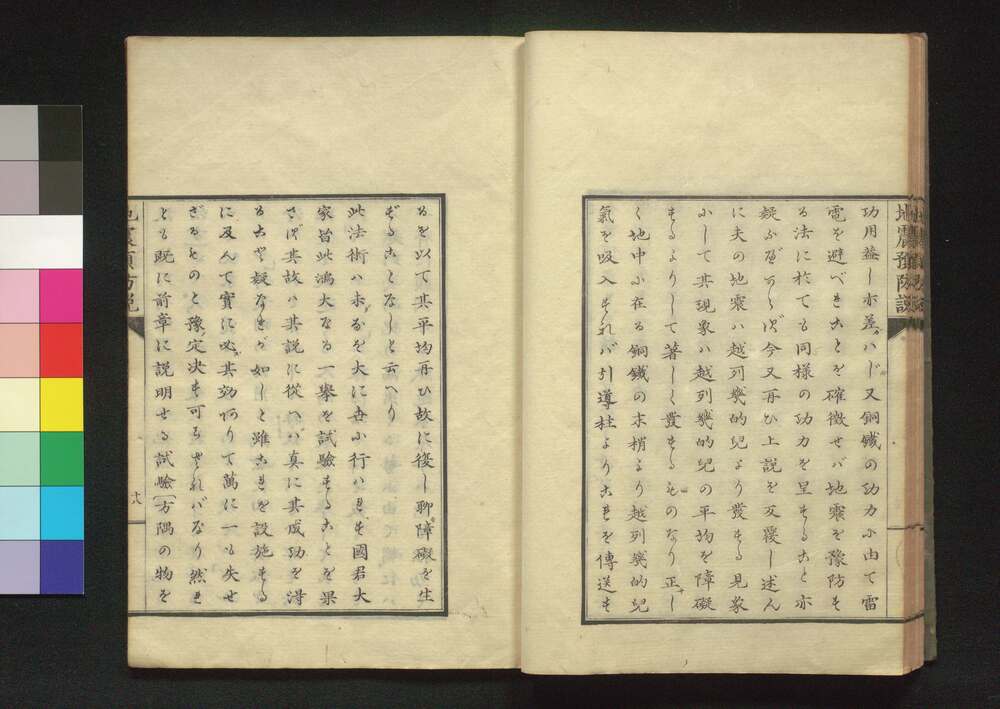 地震豫防説
功用益し亦差ハじ又銅鐵の功力に由て雷
電を避べきことを確徴せバ地震を豫防す
る法に於ても同様の功力を呈するること亦
疑ふべからず今又再ひ上説を反覆し述ん
に夫の地震ハ越列幾的兒より發する見象
ふして其現象ハ越列幾的兒の平均を障礙
するよりして著しく發するものなり正し
く地中ふ在る銅鐵の末梢より越列幾的兒
氣を吸入すれバ引導柱よりこれを傳送す
るを以て其平均再ひ故に復し聊障礙を生
ずることなしと云へり
此法術ハ未だを大に世ふ行ハれず國君大
家皆此鴻大なる一擧を試驗することを果
さず其故ハ其説に從へバ真に其成功を得
ること疑なきが如しと雖これを設施する
に及んて實に必其効ありて萬に一も失せ
ざるものと豫定決す可らざれバなり然れ
とも既に前章に説明せる試驗(方隅の物を
地震預防説